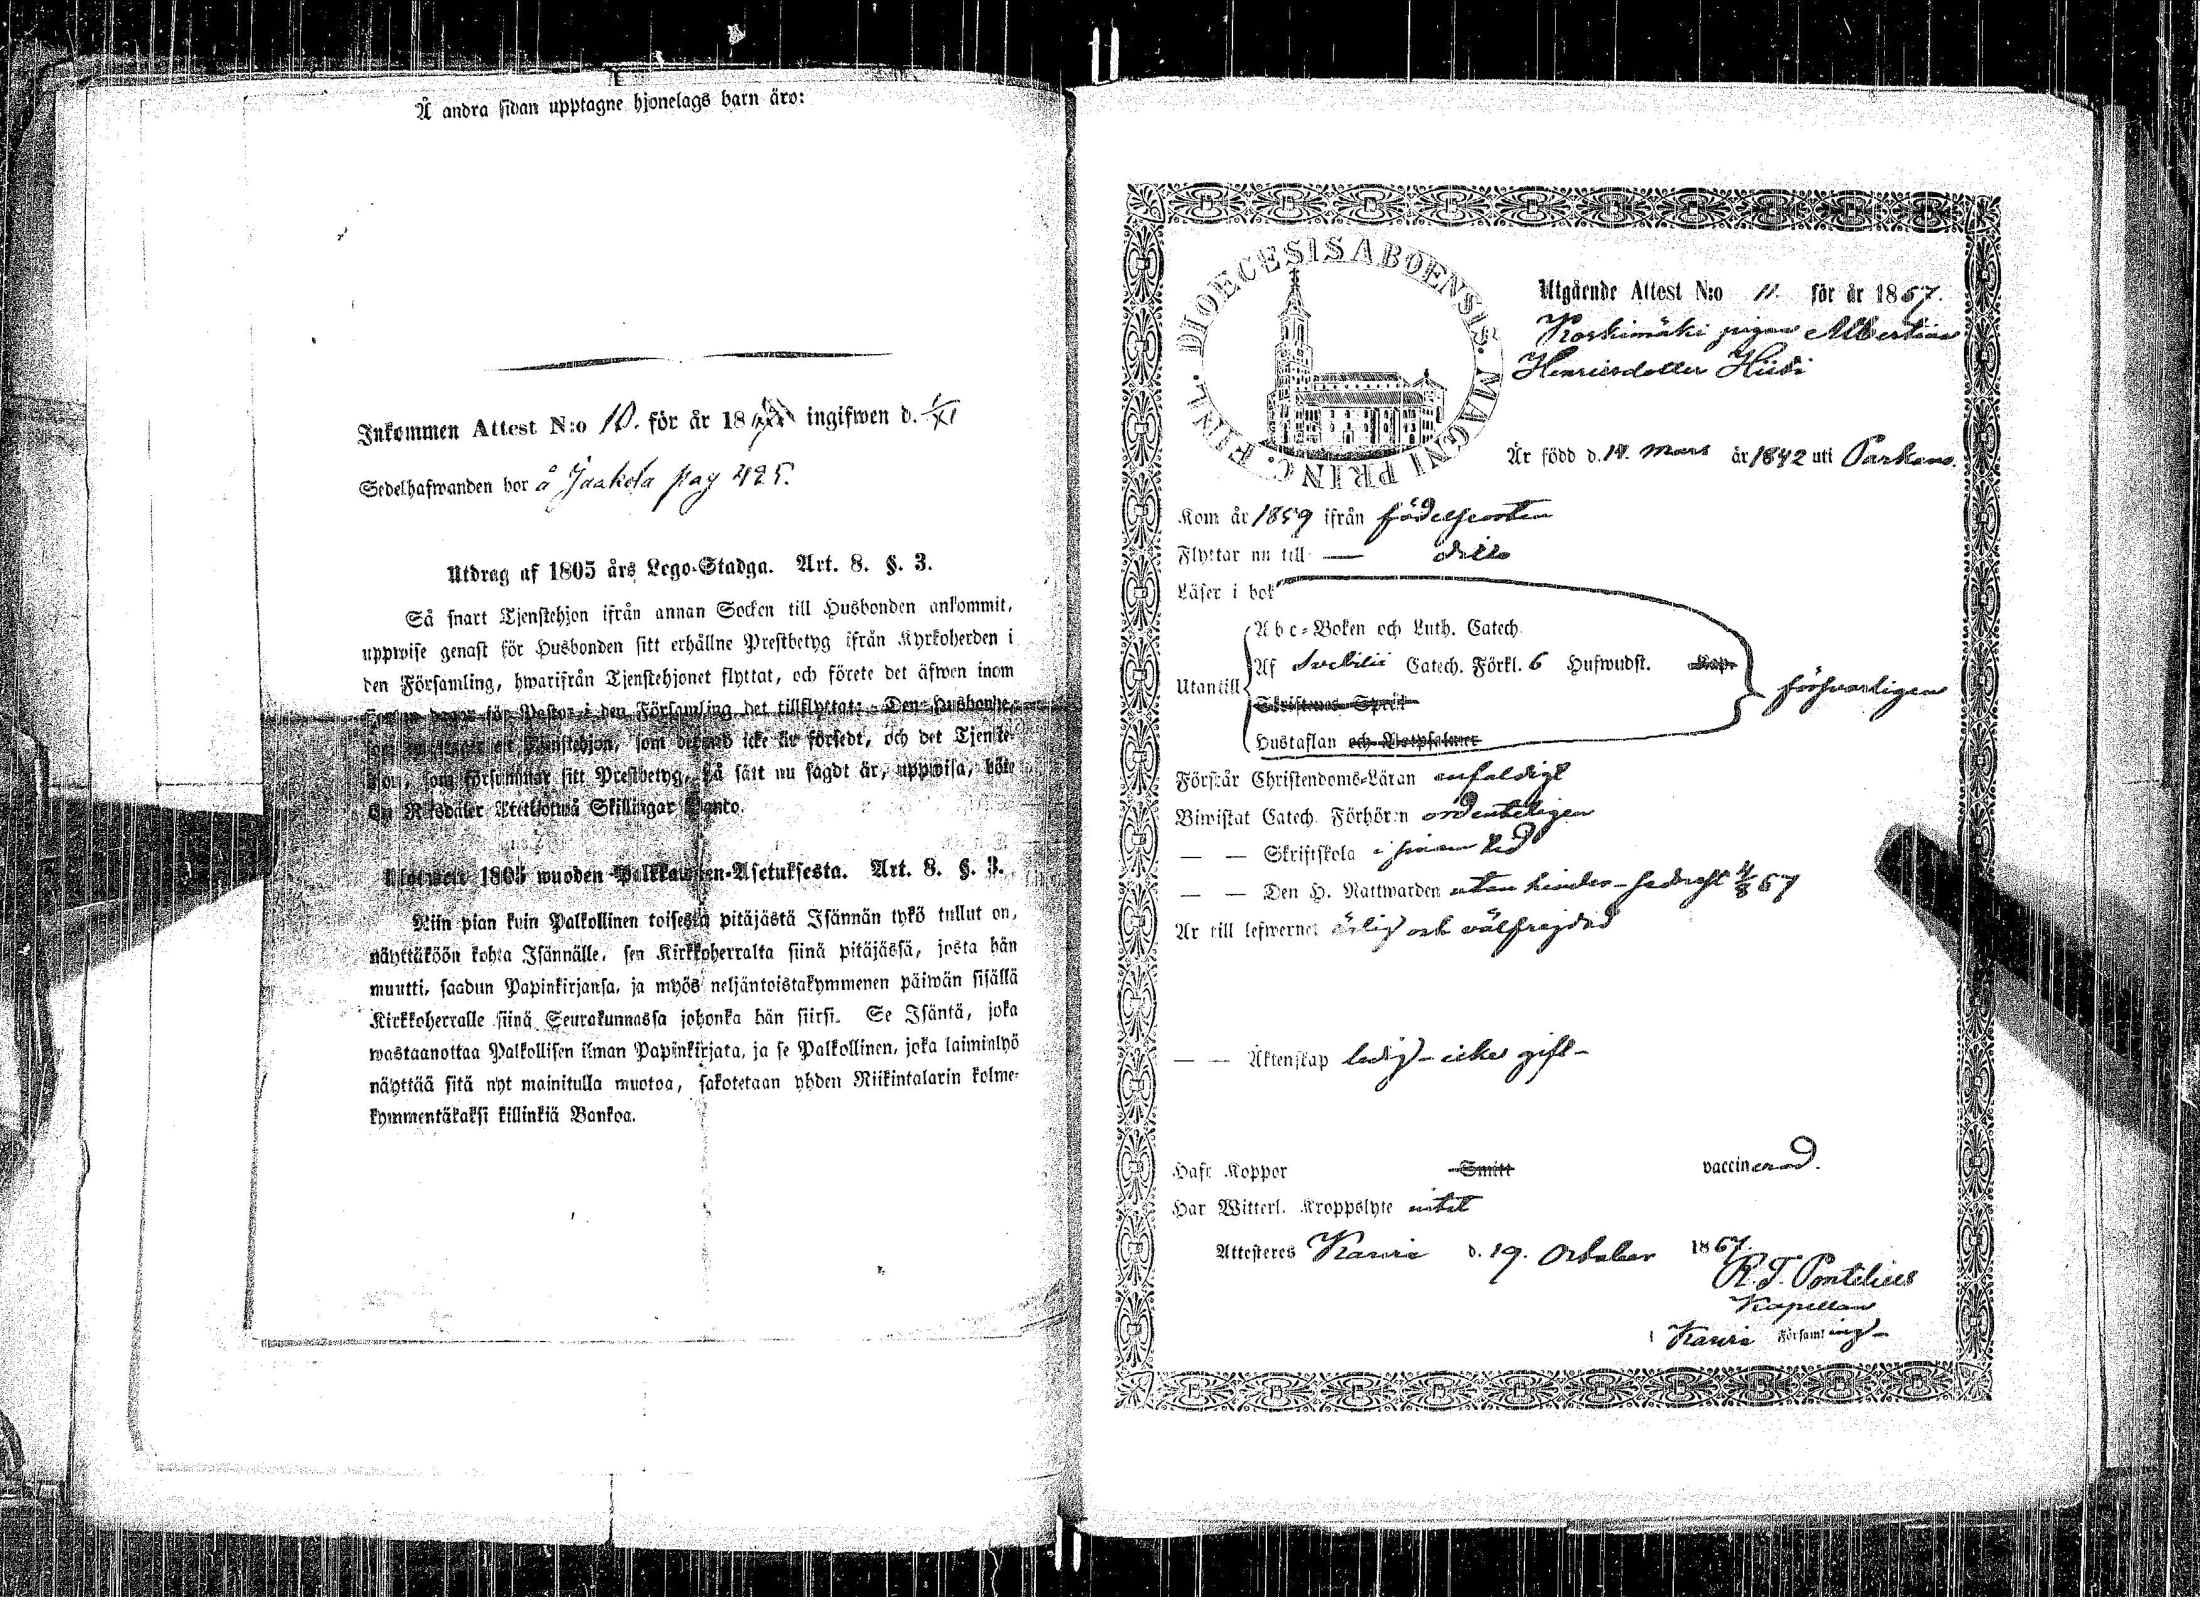 Å andra sidan upptagne hjonelags barn äro:
Inkommen Attest N:o 10. för år 18 ingifwen d. 1/XI
Sedelhafwanden bor å Jaakola pag 425.
Utdrag af 1805 års Lego-Stadga. Art. 8. §. 3.
Så snart Tjenstehjon ifrån annan Socken till Husbonden ankommit,
uppwise genast för Husbonden sitt erhållne Prestbetyg ifrån Kyrkoherden i
den Församling, hwarifrån Tjenstehjonet flyttat, och förete det äfwen inom
dagar för Pastor i den Församling det tillflyttat; Den husbonde,
som Tjenstehjon, som dermed icke är försedt, och det Tjenste-
hjon, som försummar sitt Prestbetyg, på sätt nu sagdt är, uppwisa, böte
En Riksdaler Trettiotwå Skillingar Banco.
1805 wuoden Palkkawäen-Asetuksesta. Art. 8. §. 3.
Niin pian kuin Palkollinen toisesta pitäjästä Isännän tykö tullut on,
näyttäköön kohta Isännälle, sen Kirkkoherralta siinä pitäjässä, josta hän
muutti, saadun Papinkirjansa, ja myös neljäntoistakymmenen päiwän sisällä
Kirkkoherralle siinä Seurakunnassa johonka hän siirsi. Se Isäntä, joka
wastaanottaa Palkollisen ilman Papinkirjata, ja se Palkollinen, joka laiminlyö
näyttää sitä nyt mainitulla muotoa, sakotetaan yhden Riikintalarin kolme-
kymmentäkaksi killinkiä Bankoa.
DIOECESIS ABOENSIS. MAGNI PRINC. FINL.
Utgående Attest N:o 11. för år 1867.
Koskimäki pigan Albertina
Henricsdotter Hiisi
Är född d. 18. Mars år 1842 uti Parkano.
Kom år 1859 ifrån födelseorten
Flyttar nu till — dito
Läser i bok
Abc-Boken och Luth. Catech.
Utantill Af Svebilii Catech. Förkl. 6 Hufwudst. Kap. försvarligen
Skriftenes Språk
Hustaflan och Botpsalmer
Förstår Christendoms-Läran enfaldigt
Biwistat Catech. Förhören ordenteligen
— — Skriftskola i sinom tid
— — Den H. Nattwarden utan hinder - sednast 4/8 67
Är till lefwernet ärlig och välfrejdad
— — Äktenskap ledig - icke gift -
Haft Koppor Smitt vaccinerad.
Har Witterl. Kroppslyte intet
Attesteres Karvia d. 19. October 1867.
R. T. Pontelius
Kapellan
i Karvia Församling -